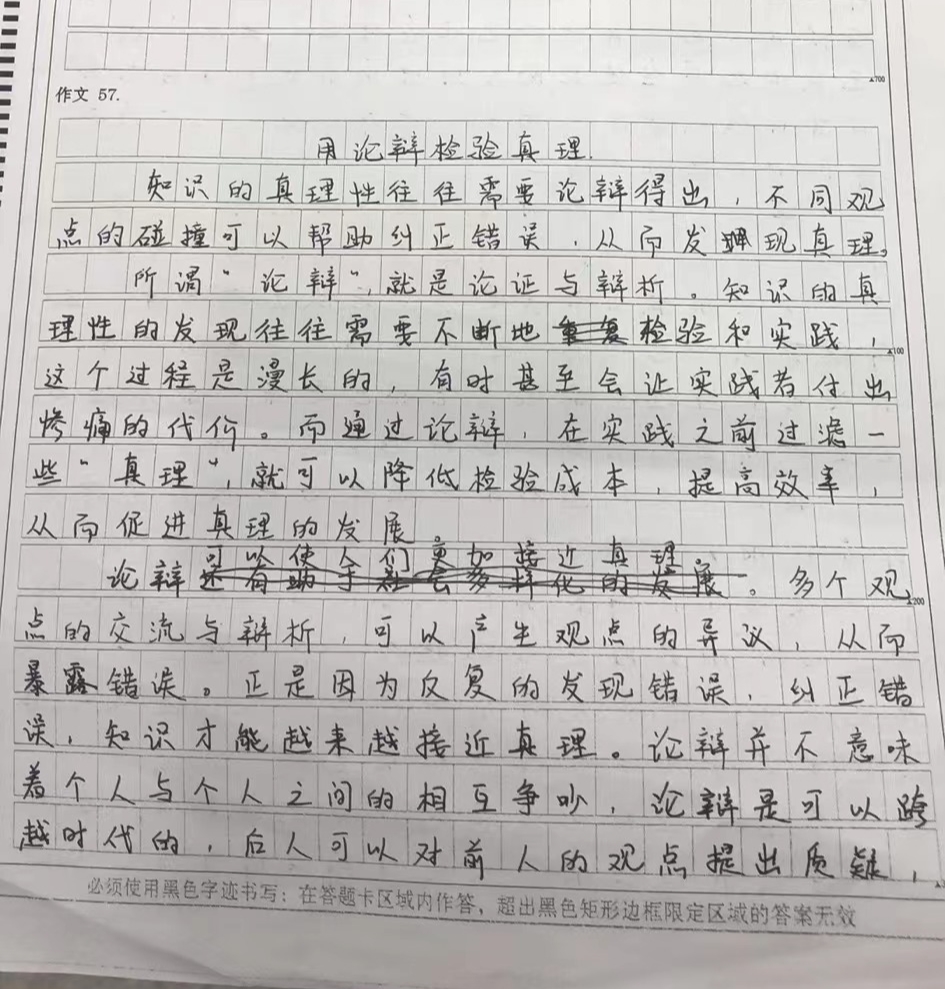 ▲700
作文 57.
用论辩检验真理.
知识的真理性往往需要论辩得出，不同观
点的碰撞可以帮助纠正错误，从而发现真理。
所谓“论辩”，就是论证与辩析。知识的真
理性的发现往往需要不断地检验和实践，
▲100
这个过程是漫长的，有时甚至会让实践者付出
惨痛的代价。而通过论辩，在实践之前过滤一
些“真理”，就可以降低检验成本，提高效率，
从而促进真理的发展。
可以使人们更加接近真理。
论辩还有助于社会多样化的发展。多个观
▲200
点的交流与辩析，可以产生观点的异议，从而
暴露错误。正是因为反复的发现错误，纠正错
误，知识才能越来越接近真理。论辩并不意味
着个人与个人之间的相互争吵，论辩是可以跨
越时代的，后人可以对前人的观点提出质疑，
必须使用黑色字迹书写；在答题卡区域内作答，超出黑色矩形边框限定区域的答案无效